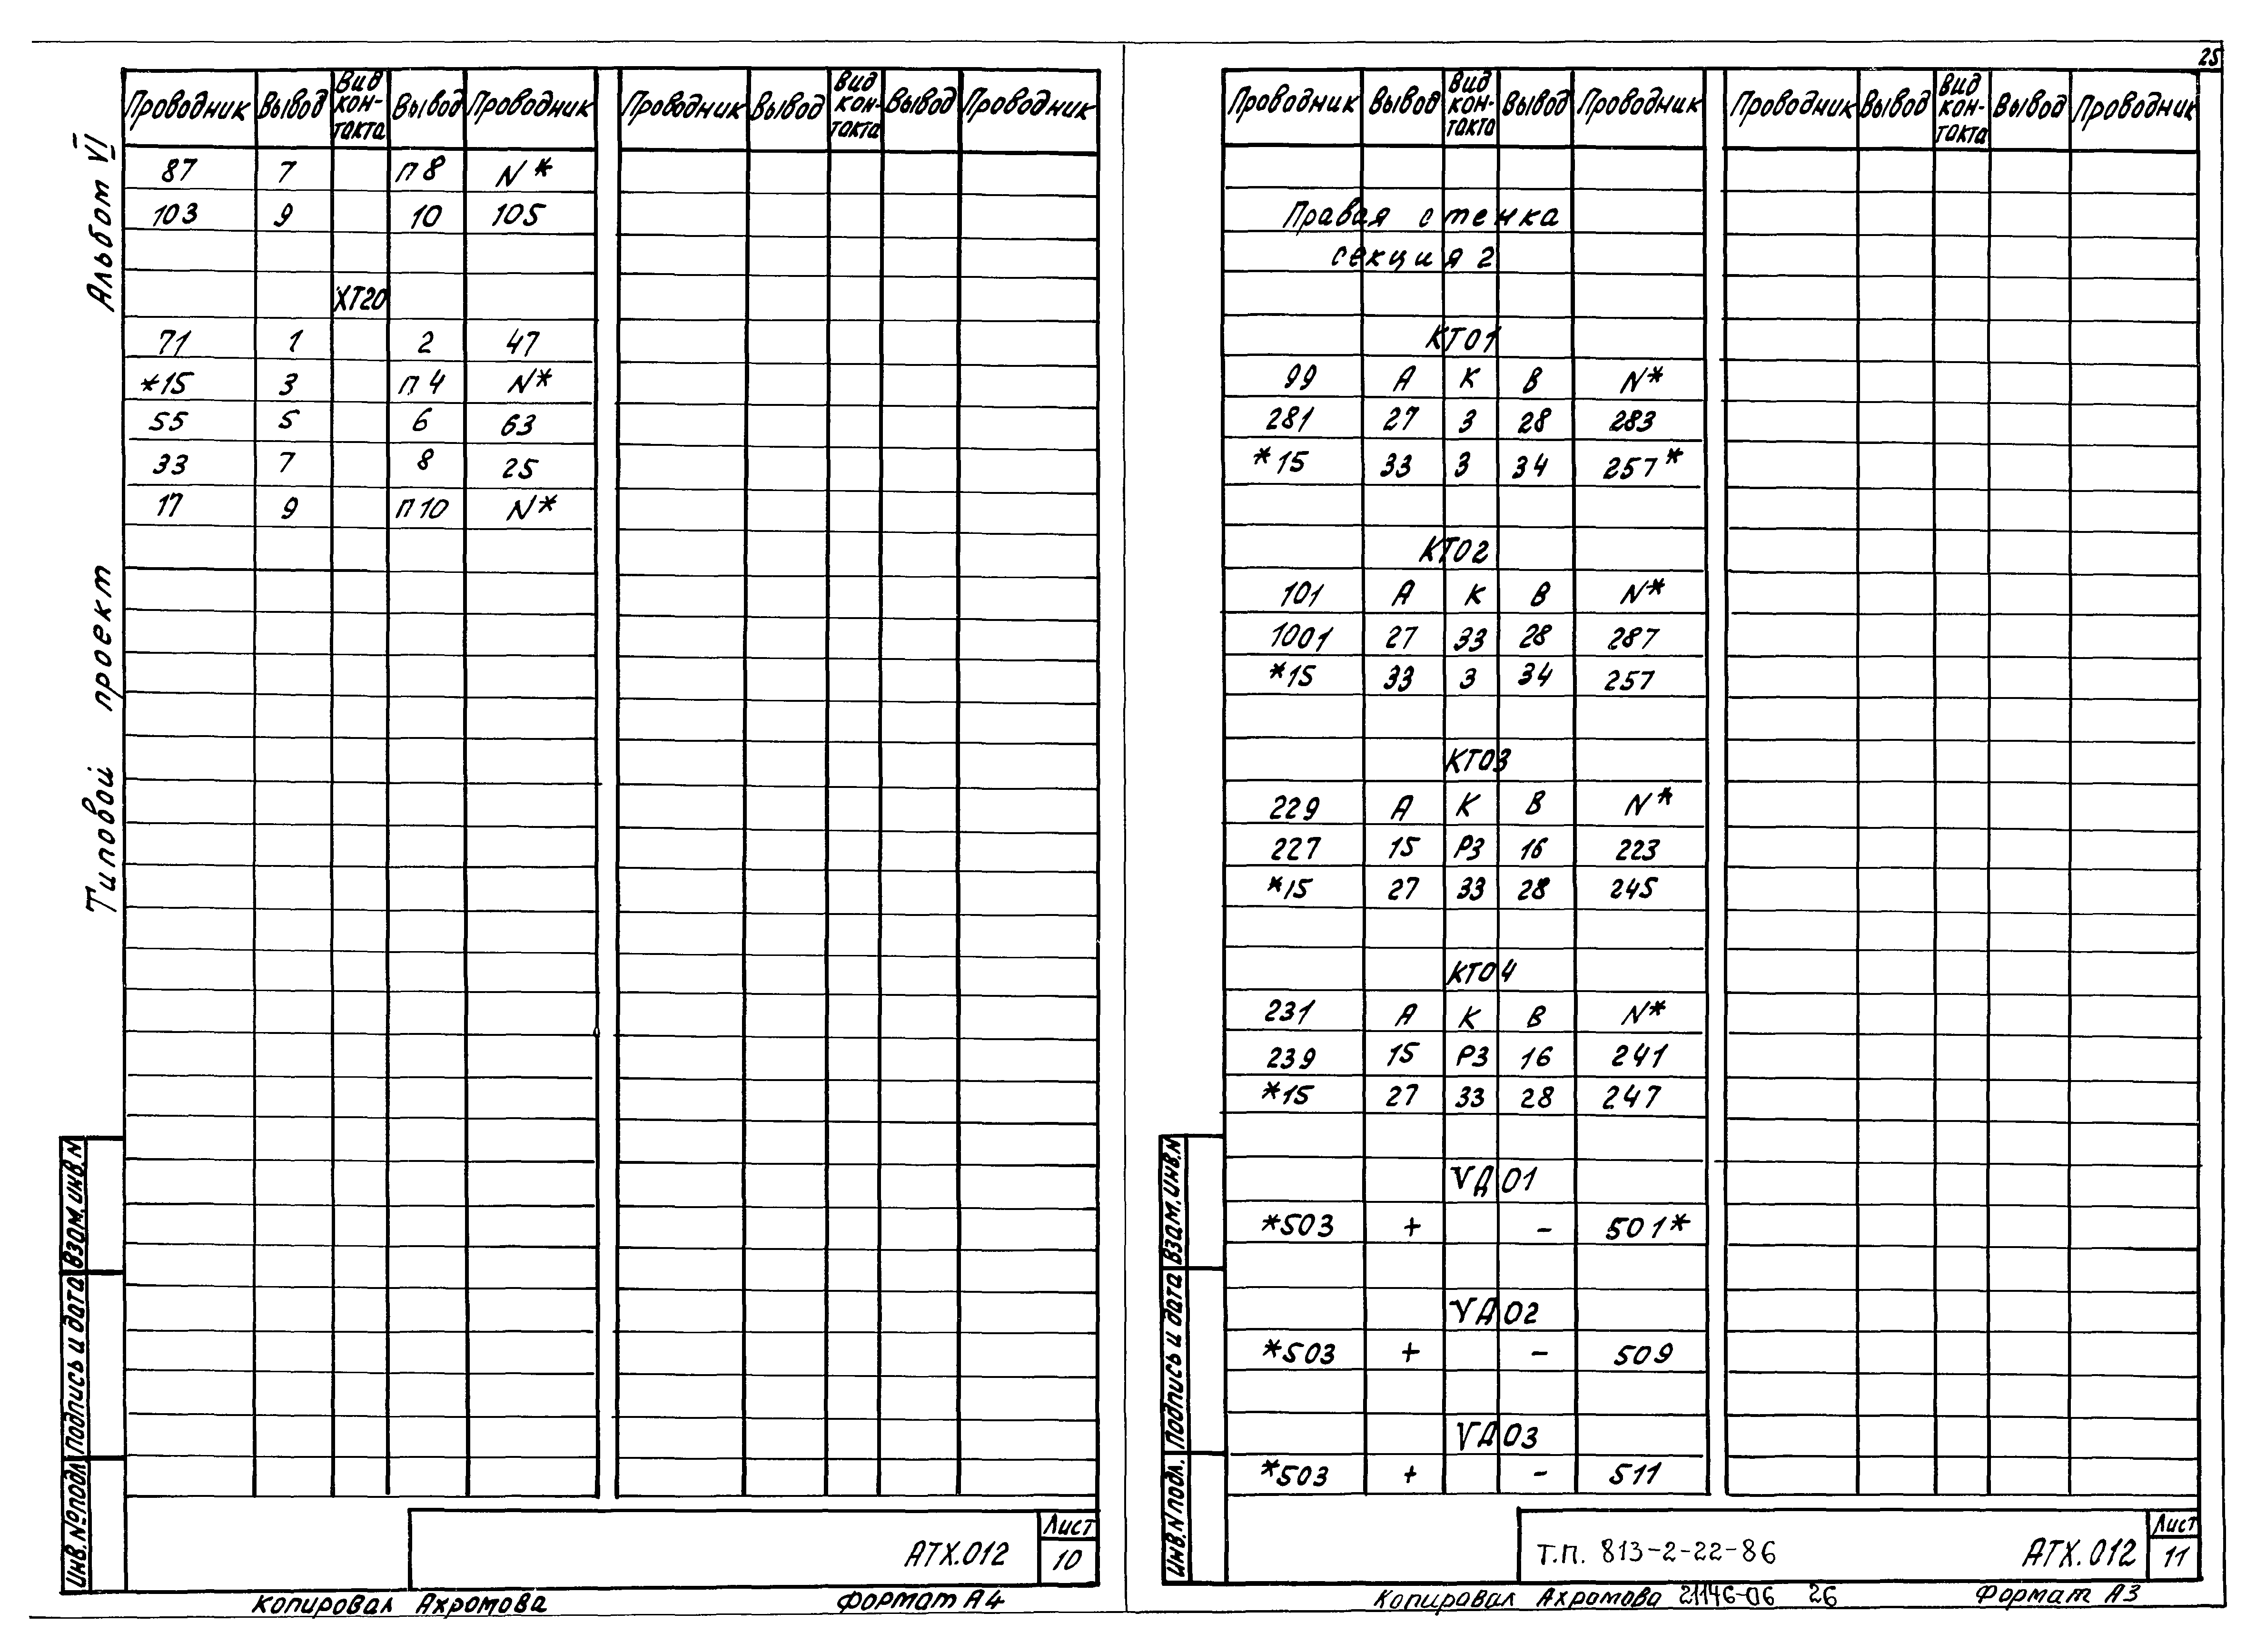 25
Альбом VI
Типовой проект
Проводник Вывод Вид контакта Вывод Проводник Проводник Вывод Вид контакта Вывод Проводник
87 7 П8 N*
103 9 10 105
ХТ20
71 1 2 47
*15 3 П4 N*
55 5 6 63
33 7 8 25
17 9 П10 N*
Взам. инв. N
Подпись и дата
Инв. № подл.
АТХ.012
Лист
10
Копировал Ахромова Формат А4
Проводник Вывод Вид контакта Вывод Проводник Проводник Вывод Вид контакта Вывод Проводник
Правая стенка
секция 2
КТ01
99 А К В N*
281 27 З 28 283
*15 33 З 34 257*
КТ02
101 А К В N*
1001 27 ЗЗ 28 287
*15 33 З 34 257
КТ03
229 А К В N*
227 15 РЗ 16 223
*15 27 ЗЗ 28 245
КТ04
231 А К В N*
239 15 РЗ 16 241
*15 27 ЗЗ 28 247
VД01
*503 + − 501*
VД02
*503 + − 509
VД03
*503 + − 511
Взам. инв. N
Подпись и дата
Инв. N подл.
Т.П. 813-2-22-86 АТХ.012
Лист
11
Копировал Ахромова 21146-06 26 Формат А3